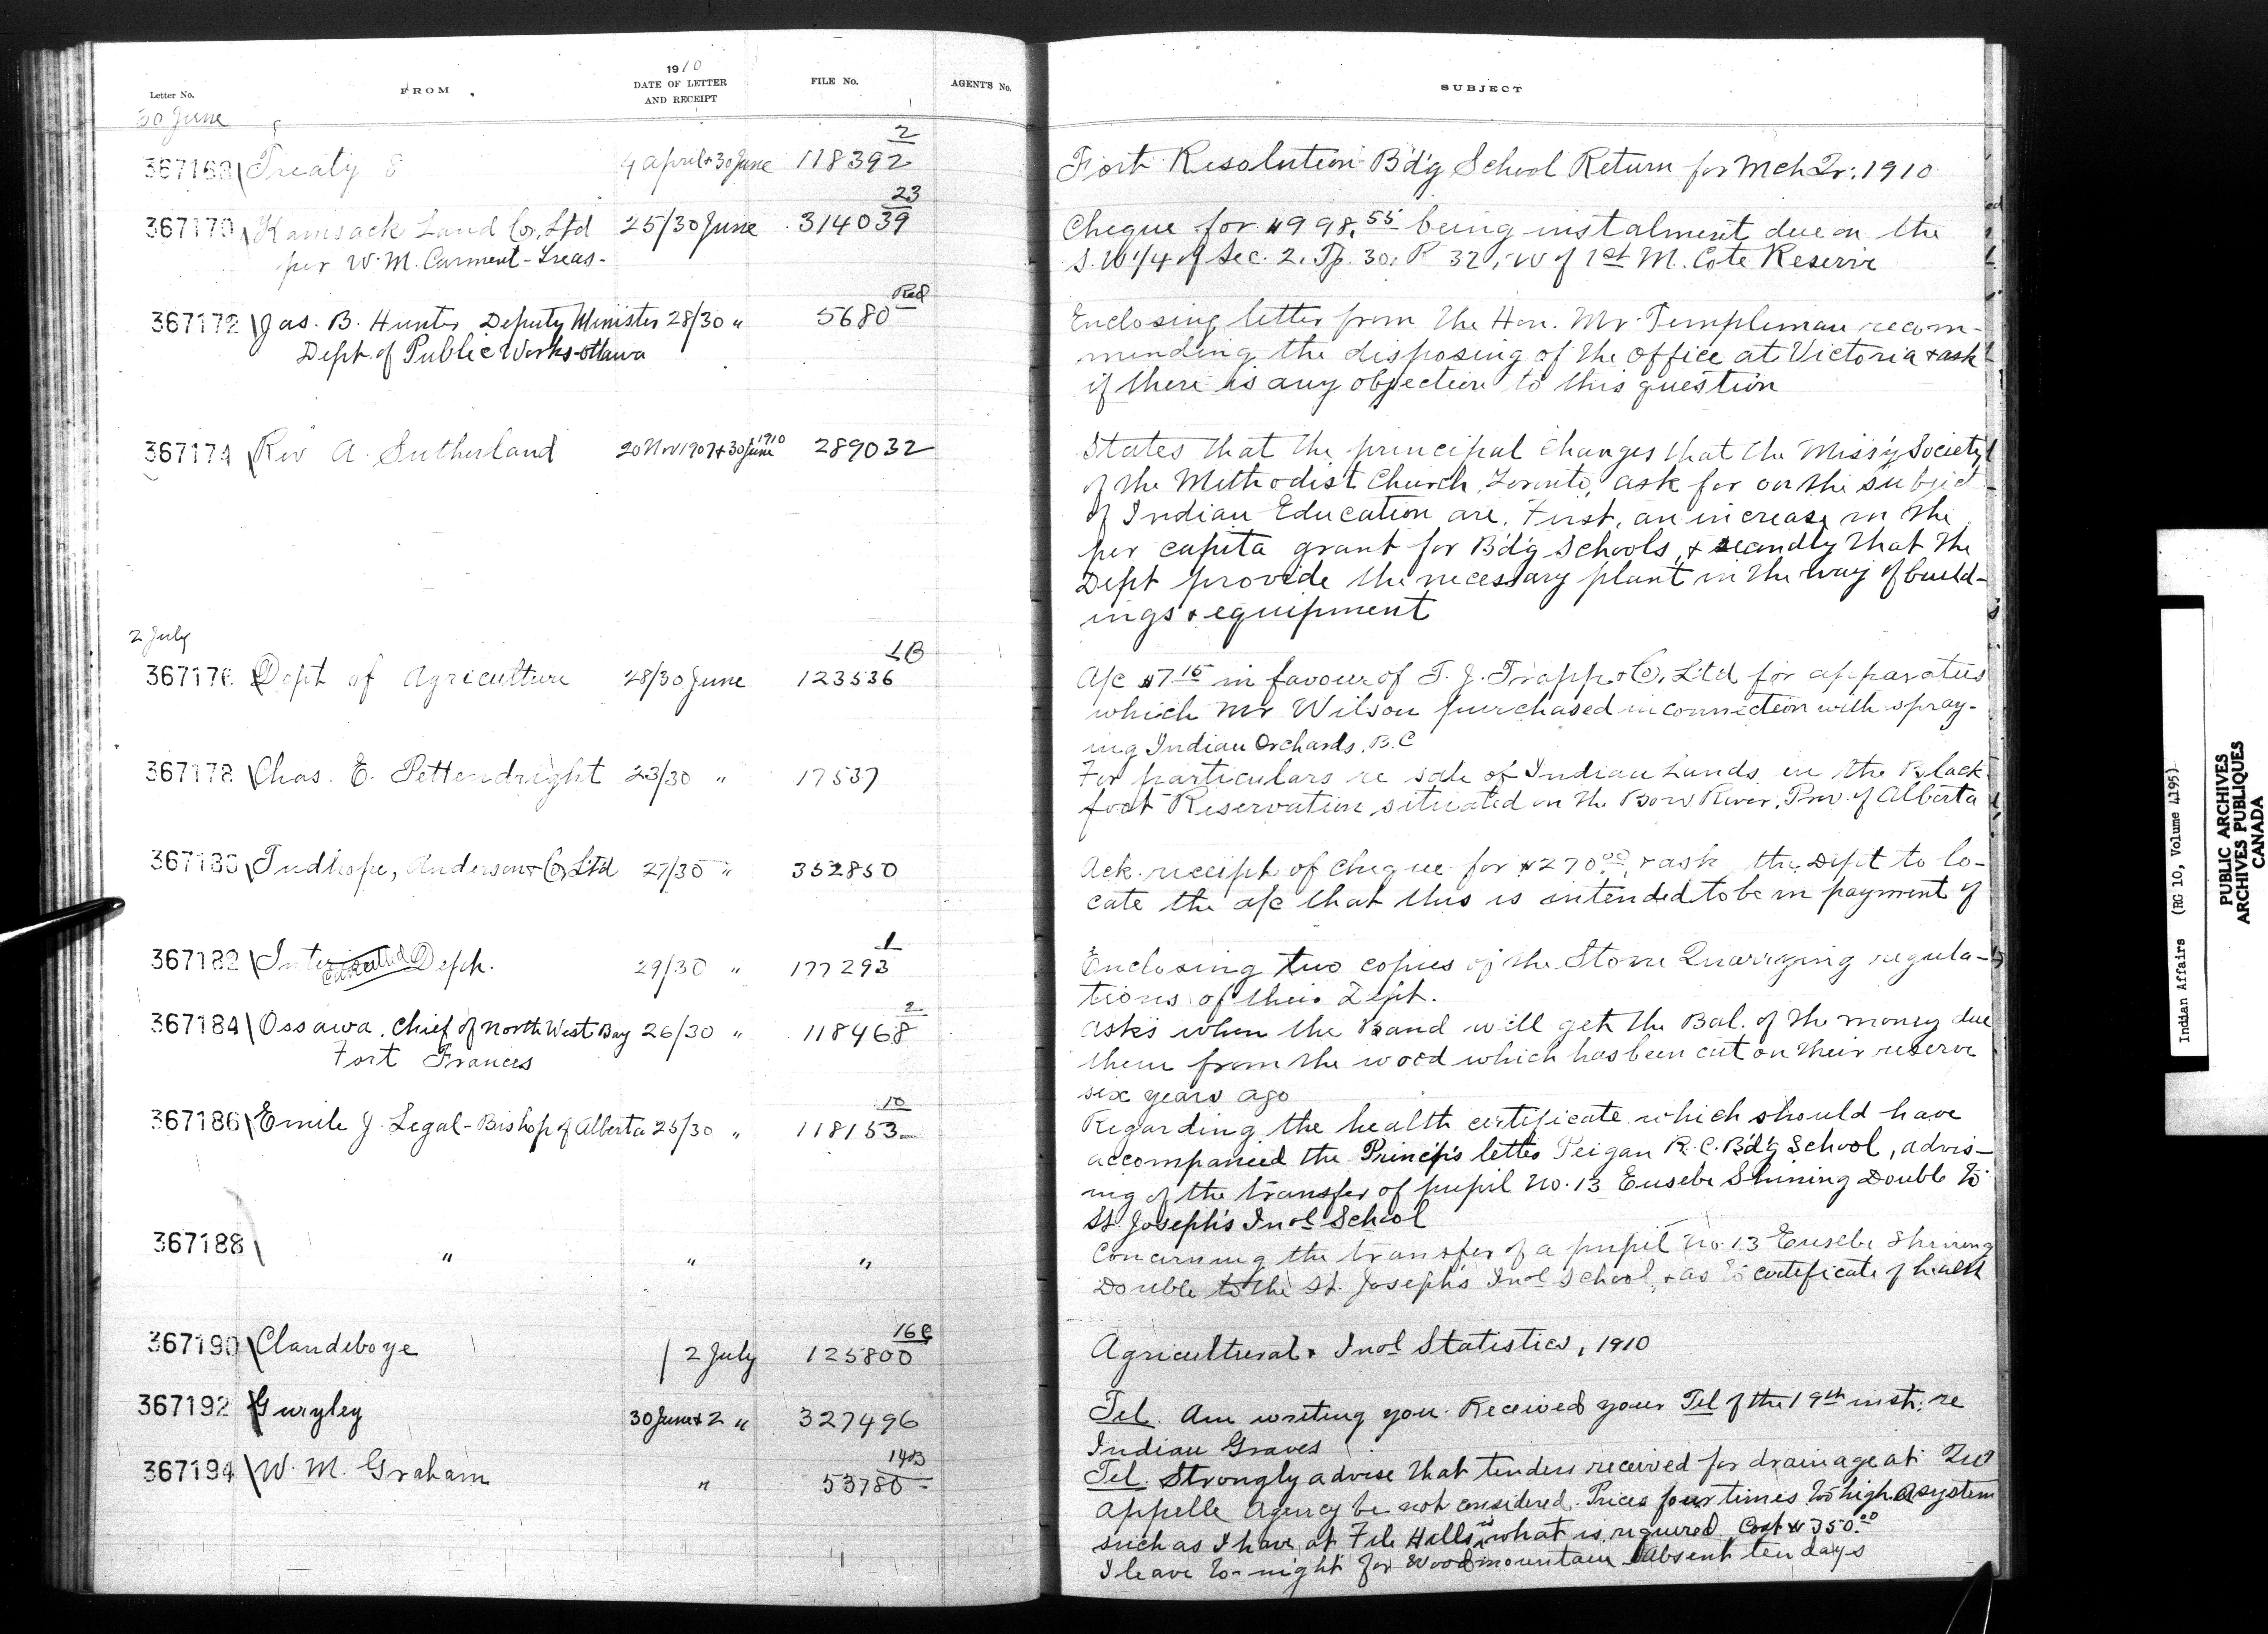 1910
Letter No. FROM DATE OF LETTER AND RECEIPT FILE No. AGENT'S No. SUBJECT
30 June
2
367168 Treaty 8 9 April & 30 June 118392 Fort Resolution Bd'g School Return for Mch Qr. 1910
23
367170 Kamsack Land Co. Ltd 25/30 June 314039 Cheque for $998.55 being instalment due on the
per W. M. Carment - Treas. S.W 1/4 of Sec. 2. Tp. 30. R 32, W of 1st M. Cote Reserve
Red
367172 Jas. B. Hunter Deputy Minister 28/30 " 5680 Enclosing letter from the Hon. Mr. Templeman recom-
Dept. of Public Works Ottawa mending the disposing of the office at Victoria & ask
if there is any objection to this question
367174 Rev A. Sutherland 20 Nov 1907 & 30 June 1910 289032 States that the principal changes that the Miss'y Society
of the Methodist Church, Toronto, ask for on the subject
of Indian Education are, First, an increase in the
per capita grant for Bd'g Schools, & secondly that the
Dept provide the necessary plant in the way of build-
ings & equipment
2 July
LB
367176 Dept of Agriculture 28/30 June 123536 A/c $7.15 in favour of T. J. Trapp & Co. Ltd for apparatus
which Mr Wilson purchased in connection with spray-
ing Indian Orchards, B.C
367178 Chas. E. Pettendright 23/30 " 17537 For particulars re sale of Indian Lands in the Black-
foot Reservation situated on the Bow River, Prov. of Alberta
367180 Tudhope, Anderson & Co. Ltd 27/30 " 352850 Ack. receipt of cheque for $270.00, & ask the Dept to lo-
cate the a/c that this is intended to be in payment of
1
367182 Inter Dept. 29/30 " 177293 Enclosing two copies of the Stone Quarrying regula-
cancelled
tions of their Dept.
2
367184 Ossawa, Chief of North West Bay 26/30 " 118468 Asks when the Band will get the Bal. of the money due
Fort Frances them from the wood which has been cut on their reserve
six years ago
10
367186 Emile J. Legal - Bishop of Alberta 25/30 " 118153 Regarding the health certificate which should have
accompanied the Princip's letter Peigan R.C. Bd'g School, advis-
ing of the transfer of pupil No. 13 Eusebe Shining Double to
St. Joseph's Indl School
367188 " " " Concerning the transfer of a pupil No. 13 Eusebe Shining
Double to the St. Joseph's Indl School, & as to certificate of health
16C
367190 Clandeboye / 2 July 125800 Agricultural & Indl Statistics, 1910
367192 Gurgley 30 June & 2 " 327496 Tel. Am writing you. Received your Tel of the 19th inst. re
Indian Graves
14B
367194 W. M. Graham " 53780 Tel. Strongly advise that tenders received for drainage at Qu'
Appelle Agency be not considered. Prices four times too high. A system
such as I have at File Hills is what is required Cost $350.00
I leave to-night for Wood Mountain Absent ten days
Indian Affairs (RG 10, Volume 4195)
PUBLIC ARCHIVES
ARCHIVES PUBLIQUES
CANADA